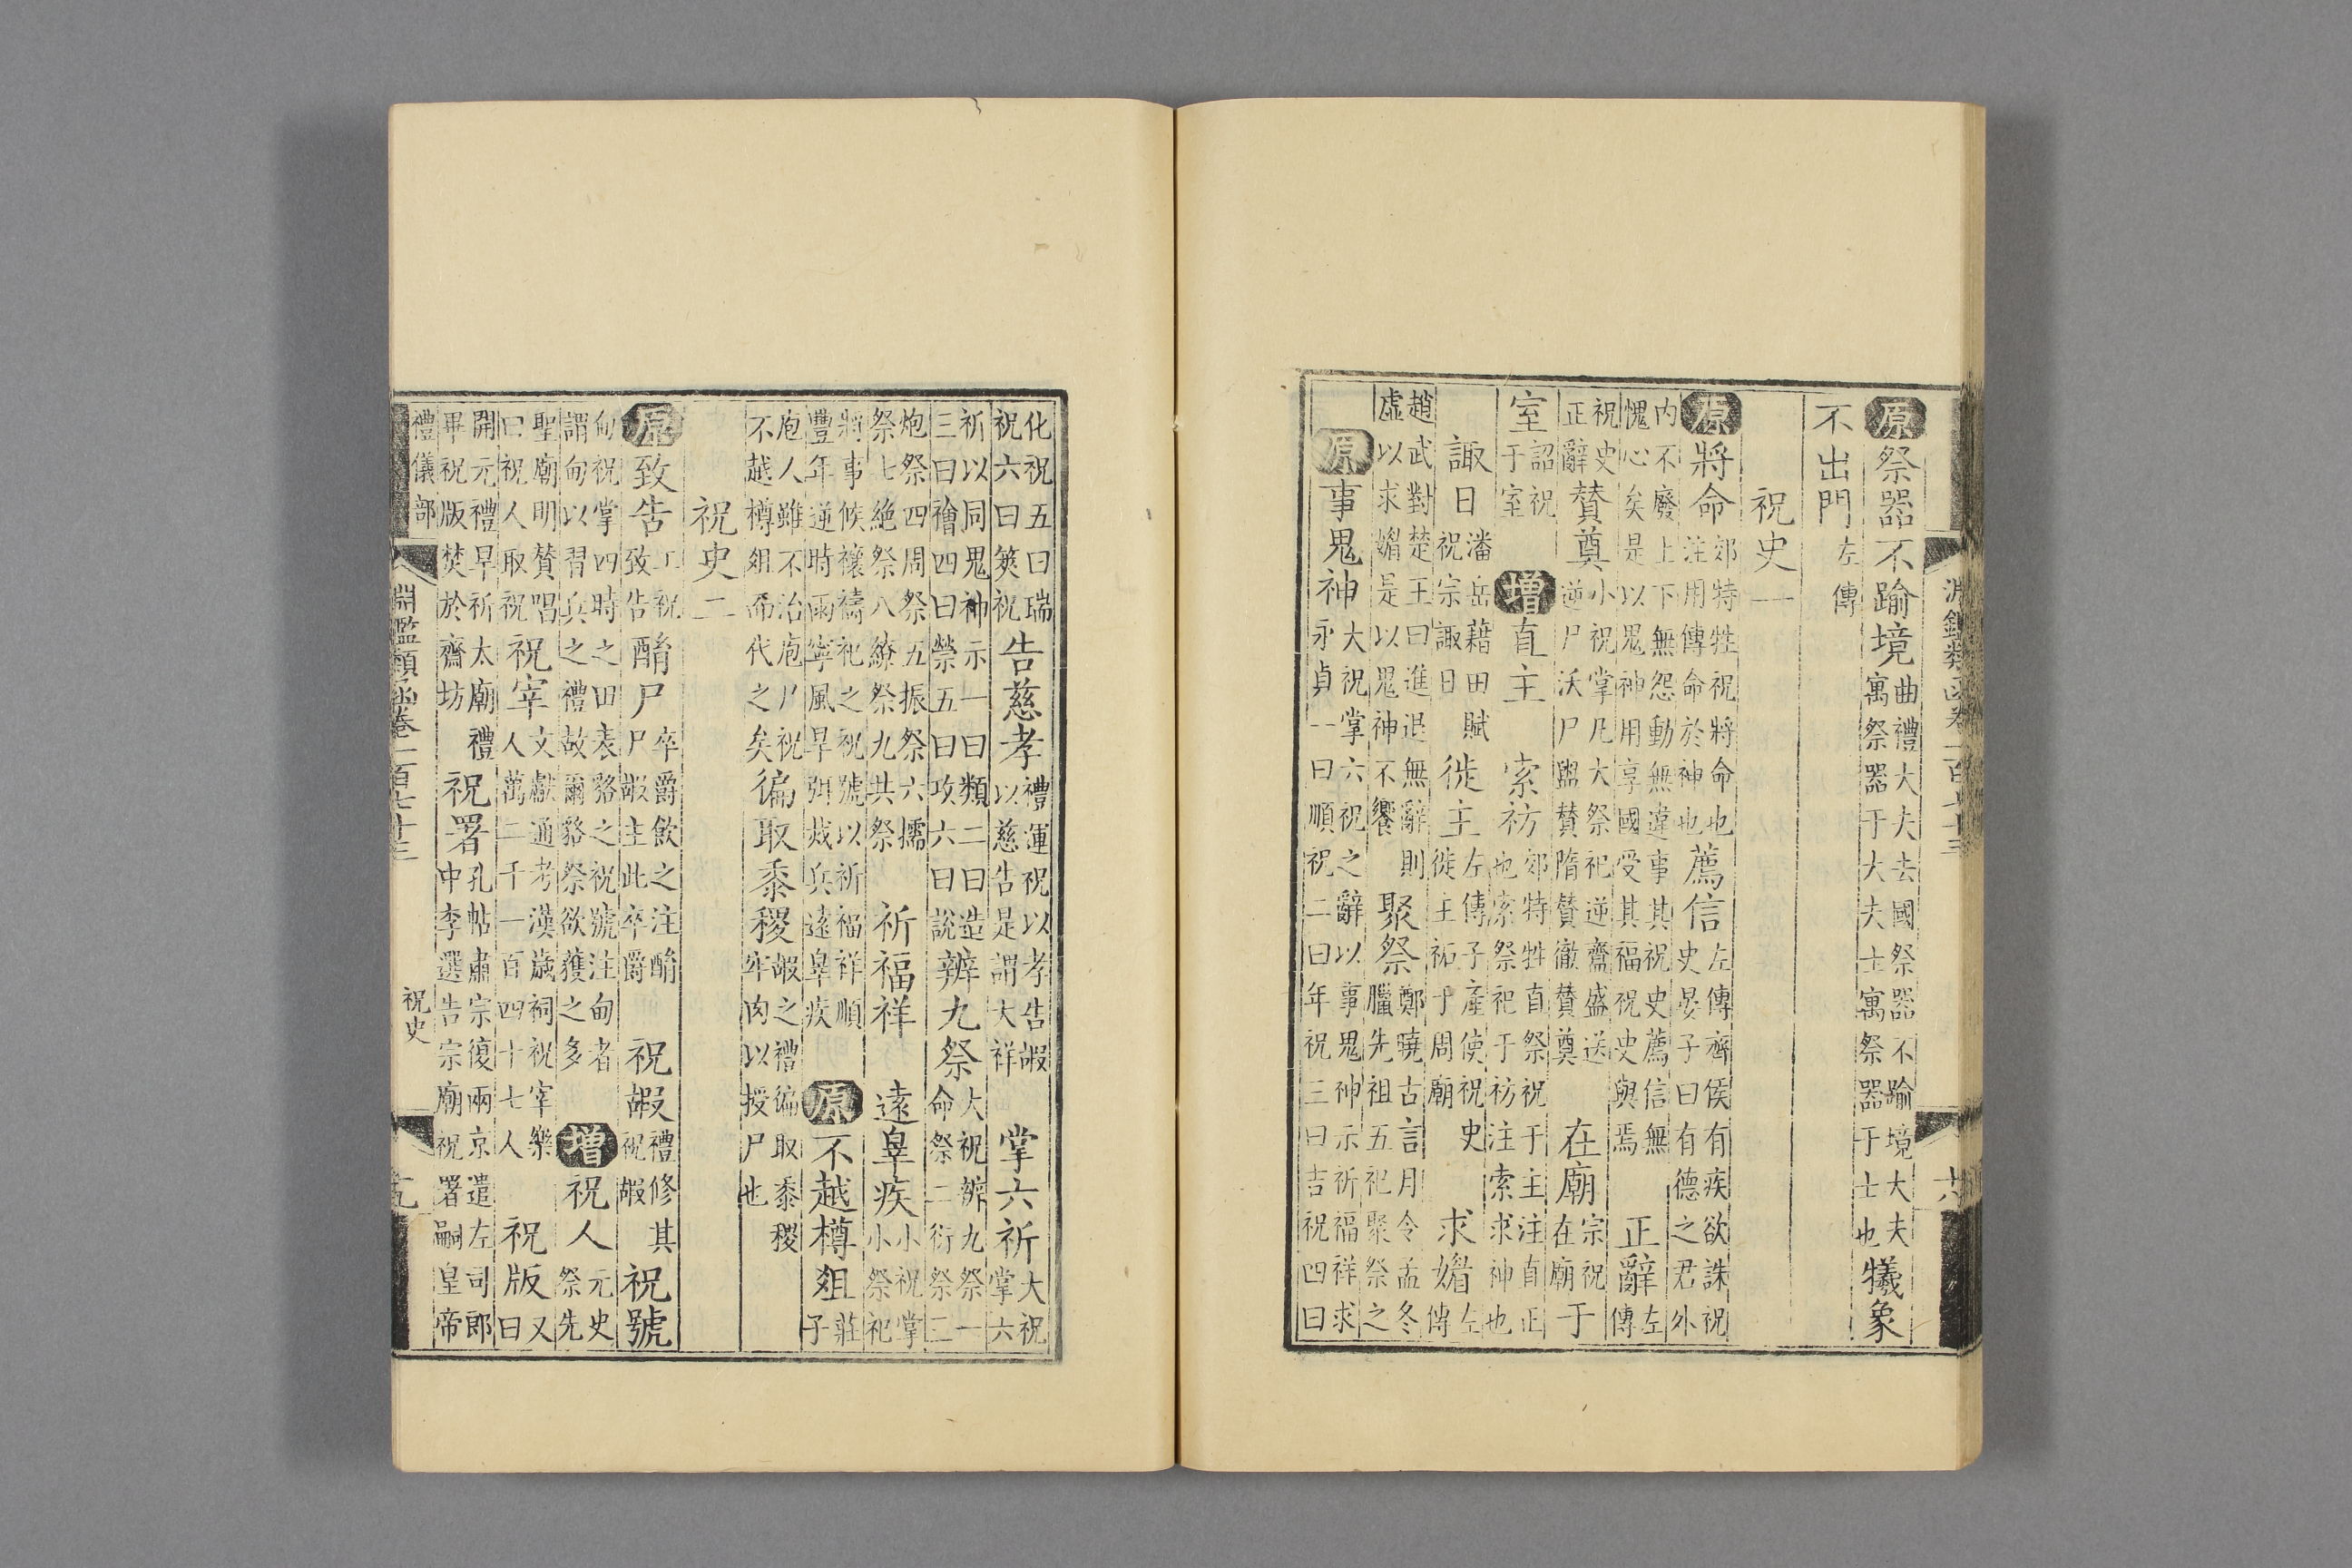 淵鑑類函卷一百七十三 六
原祭器不踰境曲禮大夫去國祭器不踰境大夫寓祭器于大夫士寓祭器于士也犧象
不出門左傳
祝史一
原將命郊特牲祝將命也注用傳命於神也薦信左傳齊侯有疾欲誅祝史晏子曰有德之君外
内不廢上下無怨動無違事其祝史薦信無愧心矣是以鬼神用享國受其福祝史與焉 正辭左傳
祝史正辭贊奠小祝掌凡大祭祀逆齍盛送逆尸沃尸盥贊隋贊徹贊奠 在廟宗祝在廟于
室詔祝于室 增直主 索祊郊特牲直祭祝于主注直正也索祭祀于祊注索求神也
諏日潘岳藉田賦祝宗諏日 徙主左傳子產使祝史徙主祏于周廟 求媚左傳
趙武對楚王曰進退無辭則虛以求媚是以鬼神不饗 聚祭鄭曉古言月令孟冬臘先祖五祀聚祭之
原事鬼神大祝掌六祝之辭以事鬼神示祈福祥求永貞一曰順祝二曰年祝三曰吉祝四曰
化祝五曰瑞祝六曰筴祝告慈孝禮運祝以孝告嘏以慈告是謂大祥 掌六祈大祝掌六
祈以同鬼神示一曰類二曰造三曰禬四曰禜五曰攻六曰說辨九祭大祝辨九祭一命祭二衍祭三
炮祭四周祭五振祭六擩祭七絶祭八繚祭九共祭 祈福祥 遠辠疾小祝掌小祭祀
將事候禳禱祀之祝號以祈福祥順豐年逆時雨寧風旱弭烖兵遠辠疾 原不越樽俎莊子
庖人雖不治庖尸祝不越樽俎而代之矣徧取黍稷嘏之禮徧取黍稷牢肉以授尸也
祝史二
原致告工祝致告酳尸卒爵飲之注酳尸嘏主此卒爵 祝嘏禮修其祝嘏祝號
甸祝掌四時之田表貉之祝號注甸者謂甸以習兵之禮故爾貉祭欲獲之多 增祝人元史祭先
聖廟明贊唱曰祝人取祝祝宰文獻通考漢歲祠祝宰樂人萬二千一百四十七人 祝版又曰
開元禮早祈太廟禮畢祝版焚於齋坊 祝署孔帖肅宗復兩京遣左司郎中李選告宗廟祝署嗣皇帝
禮儀部 淵鑑類函卷一百七十三 祝史